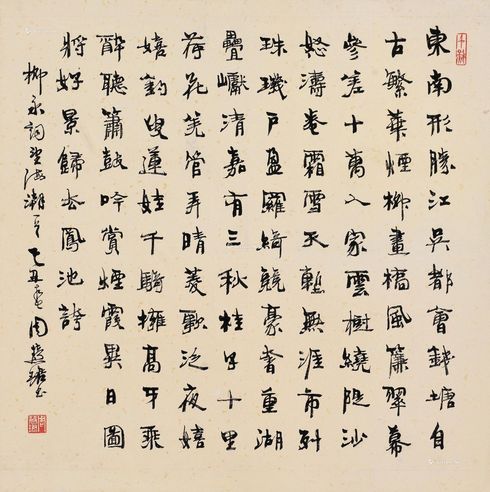 東南形勝江吳都會錢塘自
古繁華煙柳畫橋風簾翠幕
參差十萬人家雲樹繞隄沙
怒濤卷霜雪天塹無涯市列
珠璣戶盈羅綺競豪奢重湖
疊巘清嘉有三秋桂子十里
荷花羌管弄晴菱歌泛夜嬉
嬉釣叟蓮娃千騎擁高牙乘
醉聽簫鼓吟賞煙霞異日圖
將好景歸去鳳池誇
柳永詞望海潮 乙丑夏周慧珺书